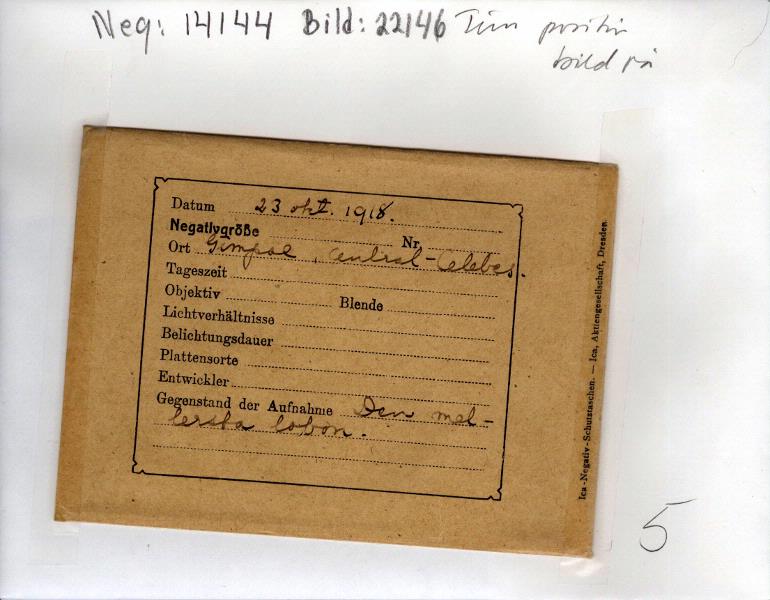 Neg: 14144 Bild: 22146 Tun positiv
bild på
Datum 23 okt. 1918.
Negativgröße Nr.
Ort Gimpoe, Central-Celebes.
Tageszeit
Objektiv Blende
Lichtverhältnisse
Belichtungsdauer
Plattensorte
Entwickler
Gegenstand der Aufnahme Den mel-
lersta lobon.
Ica-Negativ-Schutztaschen. — Ica, Aktiengesellschaft, Dresden.
5